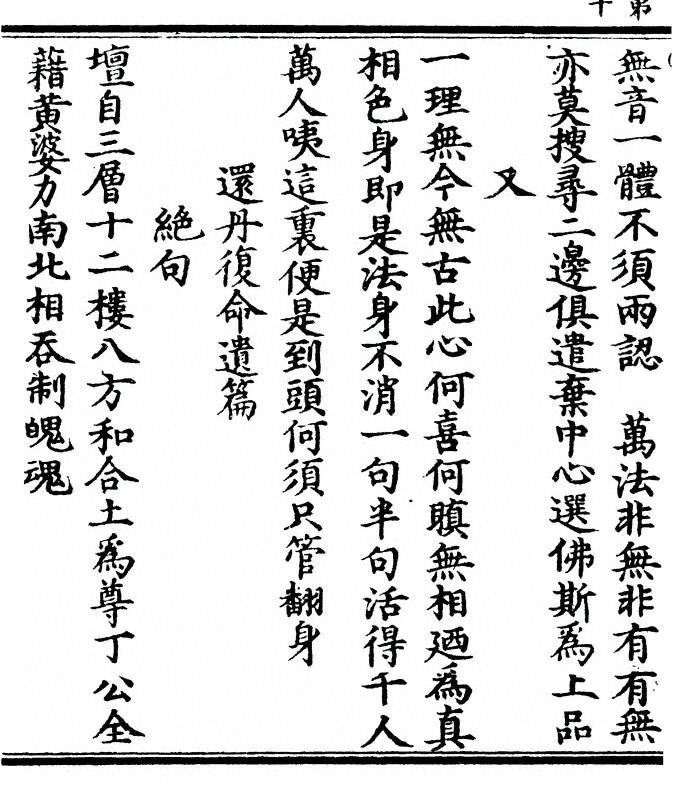 第十
無音一體不須兩認　萬法非無非有有無
亦莫搜尋二邊俱遣棄中心選佛斯為上品
又
一理無今無古此心何喜何瞋無相廼為真
相色身即是法身不消一句半句活得千人
萬人咦這裏便是到頭何須只管翻身
還丹復命遺篇
絕句
壇自三層十二樓八方和合土為尊丁公全
藉黃婆力南北相吞制魄魂